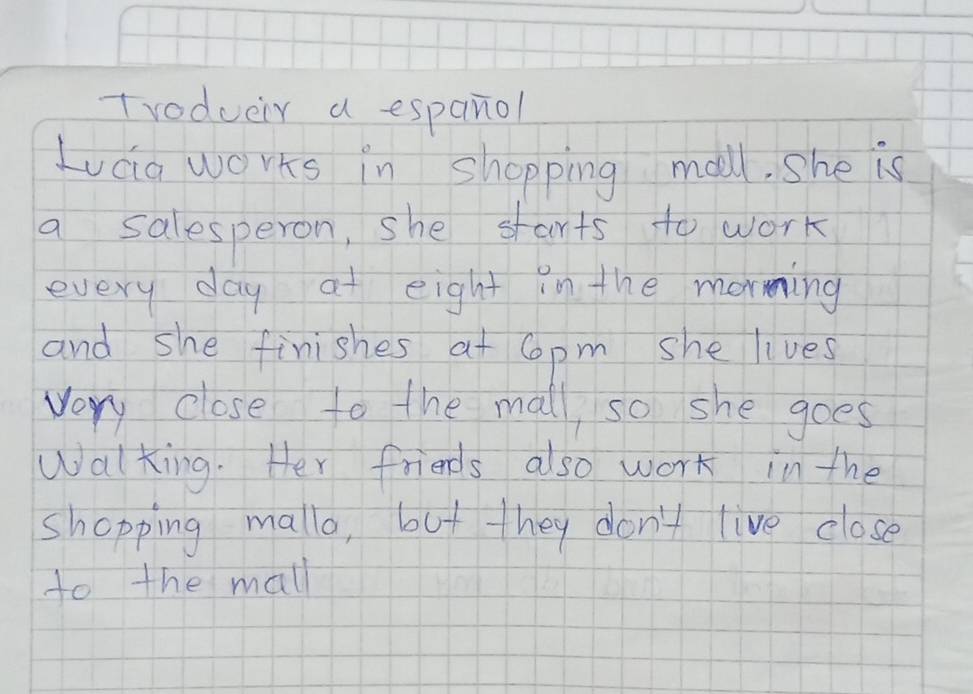 Troducir a español
Lucía works in shopping mall. She is
a salesperon, she starts to work
every day at eight in the morning
and she finishes at 6pm she lives
very close to the mall, so she goes
Walking. Her frieds also work in the
shopping malla, but they don't live close
to the mall